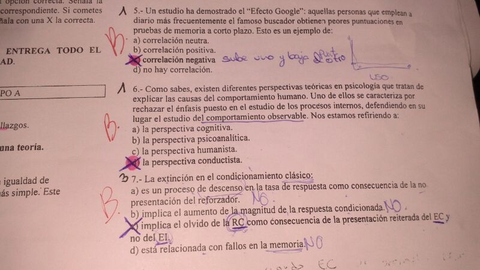 opción correcta. Señala la
correspondiente. Si cometes
ñala con una X la correcta.
ENTREGA TODO EL
AD.
PO A
llazgos.
una teoría.
igualdad de
ás simple. Este
1
B.
5.- Un estudio ha demostrado el “Efecto Google”: aquellas personas que emplean a
diario más frecuentemente el famoso buscador obtienen peores puntuaciones en
pruebas de memoria a corto plazo. Esto es un ejemplo de:
a) correlación neutra.
b) correlación positiva.
correlación negativa sube uno y baja otro
d) no hay correlación.
USO
1
B.
6.- Como sabes, existen diferentes perspectivas teóricas en psicología que tratan de
explicar las causas del comportamiento humano. Uno de ellos se caracteriza por
rechazar el énfasis puesto en el estudio de los procesos internos, defendiendo en su
lugar el estudio del comportamiento observable. Nos estamos refiriendo a:
a) la perspectiva cognitiva.
b) la perspectiva psicoanalítica.
c) la perspectiva humanista.
la perspectiva conductista.
3
B.
7.- La extinción en el condicionamiento clásico:
a) es un proceso de descenso en la tasa de respuesta como consecuencia de la no
presentación del reforzador. NO
b) implica el aumento de la magnitud de la respuesta condicionada. NO
implica el olvido de la RC como consecuencia de la presentación reiterada del EC y
no del EI.
d) está relacionada con fallos en la memoria. NO
EC